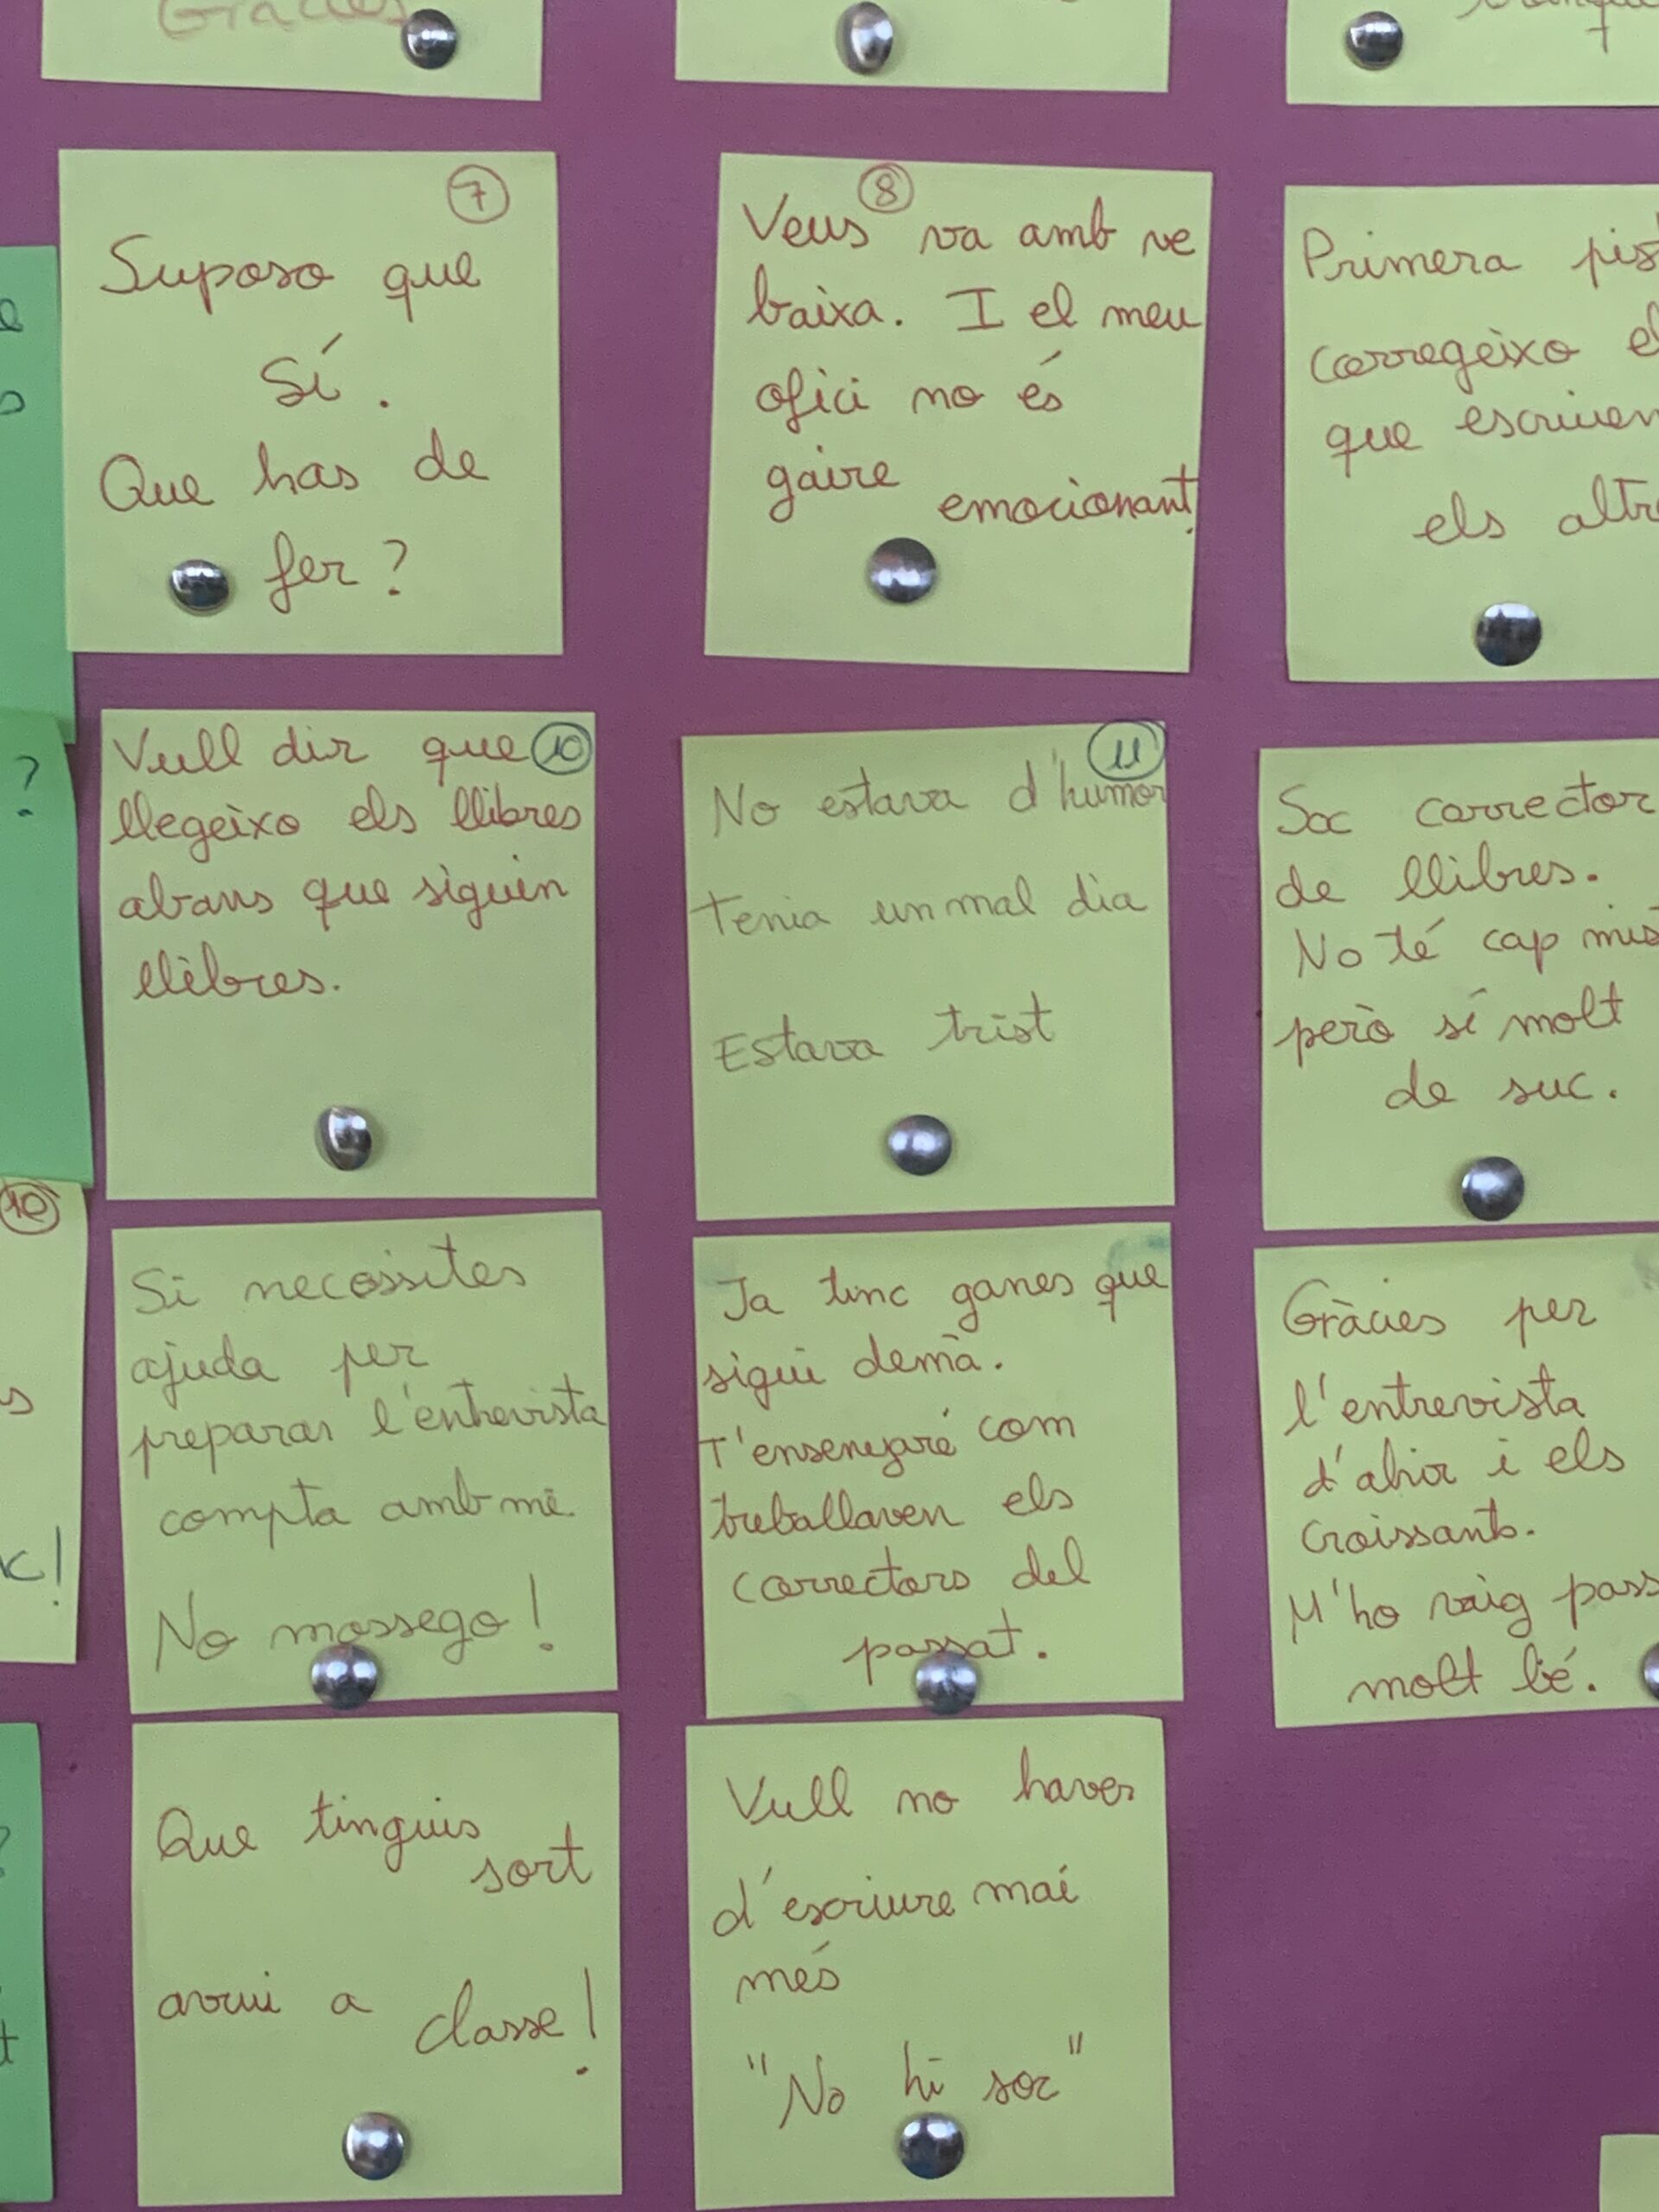 Gràcies
7
Suposo que
sí.
Que has de
fer?
8
Veus va amb ve
baixa. I el meu
ofici no és
gaire emocionant.
Primera
corregeixo
que
els
10
Vull dir que
llegeixo els llibres
abans que siguin
llibres.
11
No estava d'humor
Tenia un mal dia
Estava trist
Soc corrector
de llibres.
No té cap
però sí molt
de suc.
?
10
Si necessites
ajuda per
preparar l'entrevista
compta amb mi.
No mossego!
Ja tinc ganes que
sigui demà.
T'ensenyaré com
treballaven els
correctors del
passat.
Gràcies per
l'entrevista
d'ahir i els
croissants.
M'ho vaig
molt bé.
Que tinguis
sort
avui a classe!
Vull no haver
d'escriure mai
més
"No hi soc"